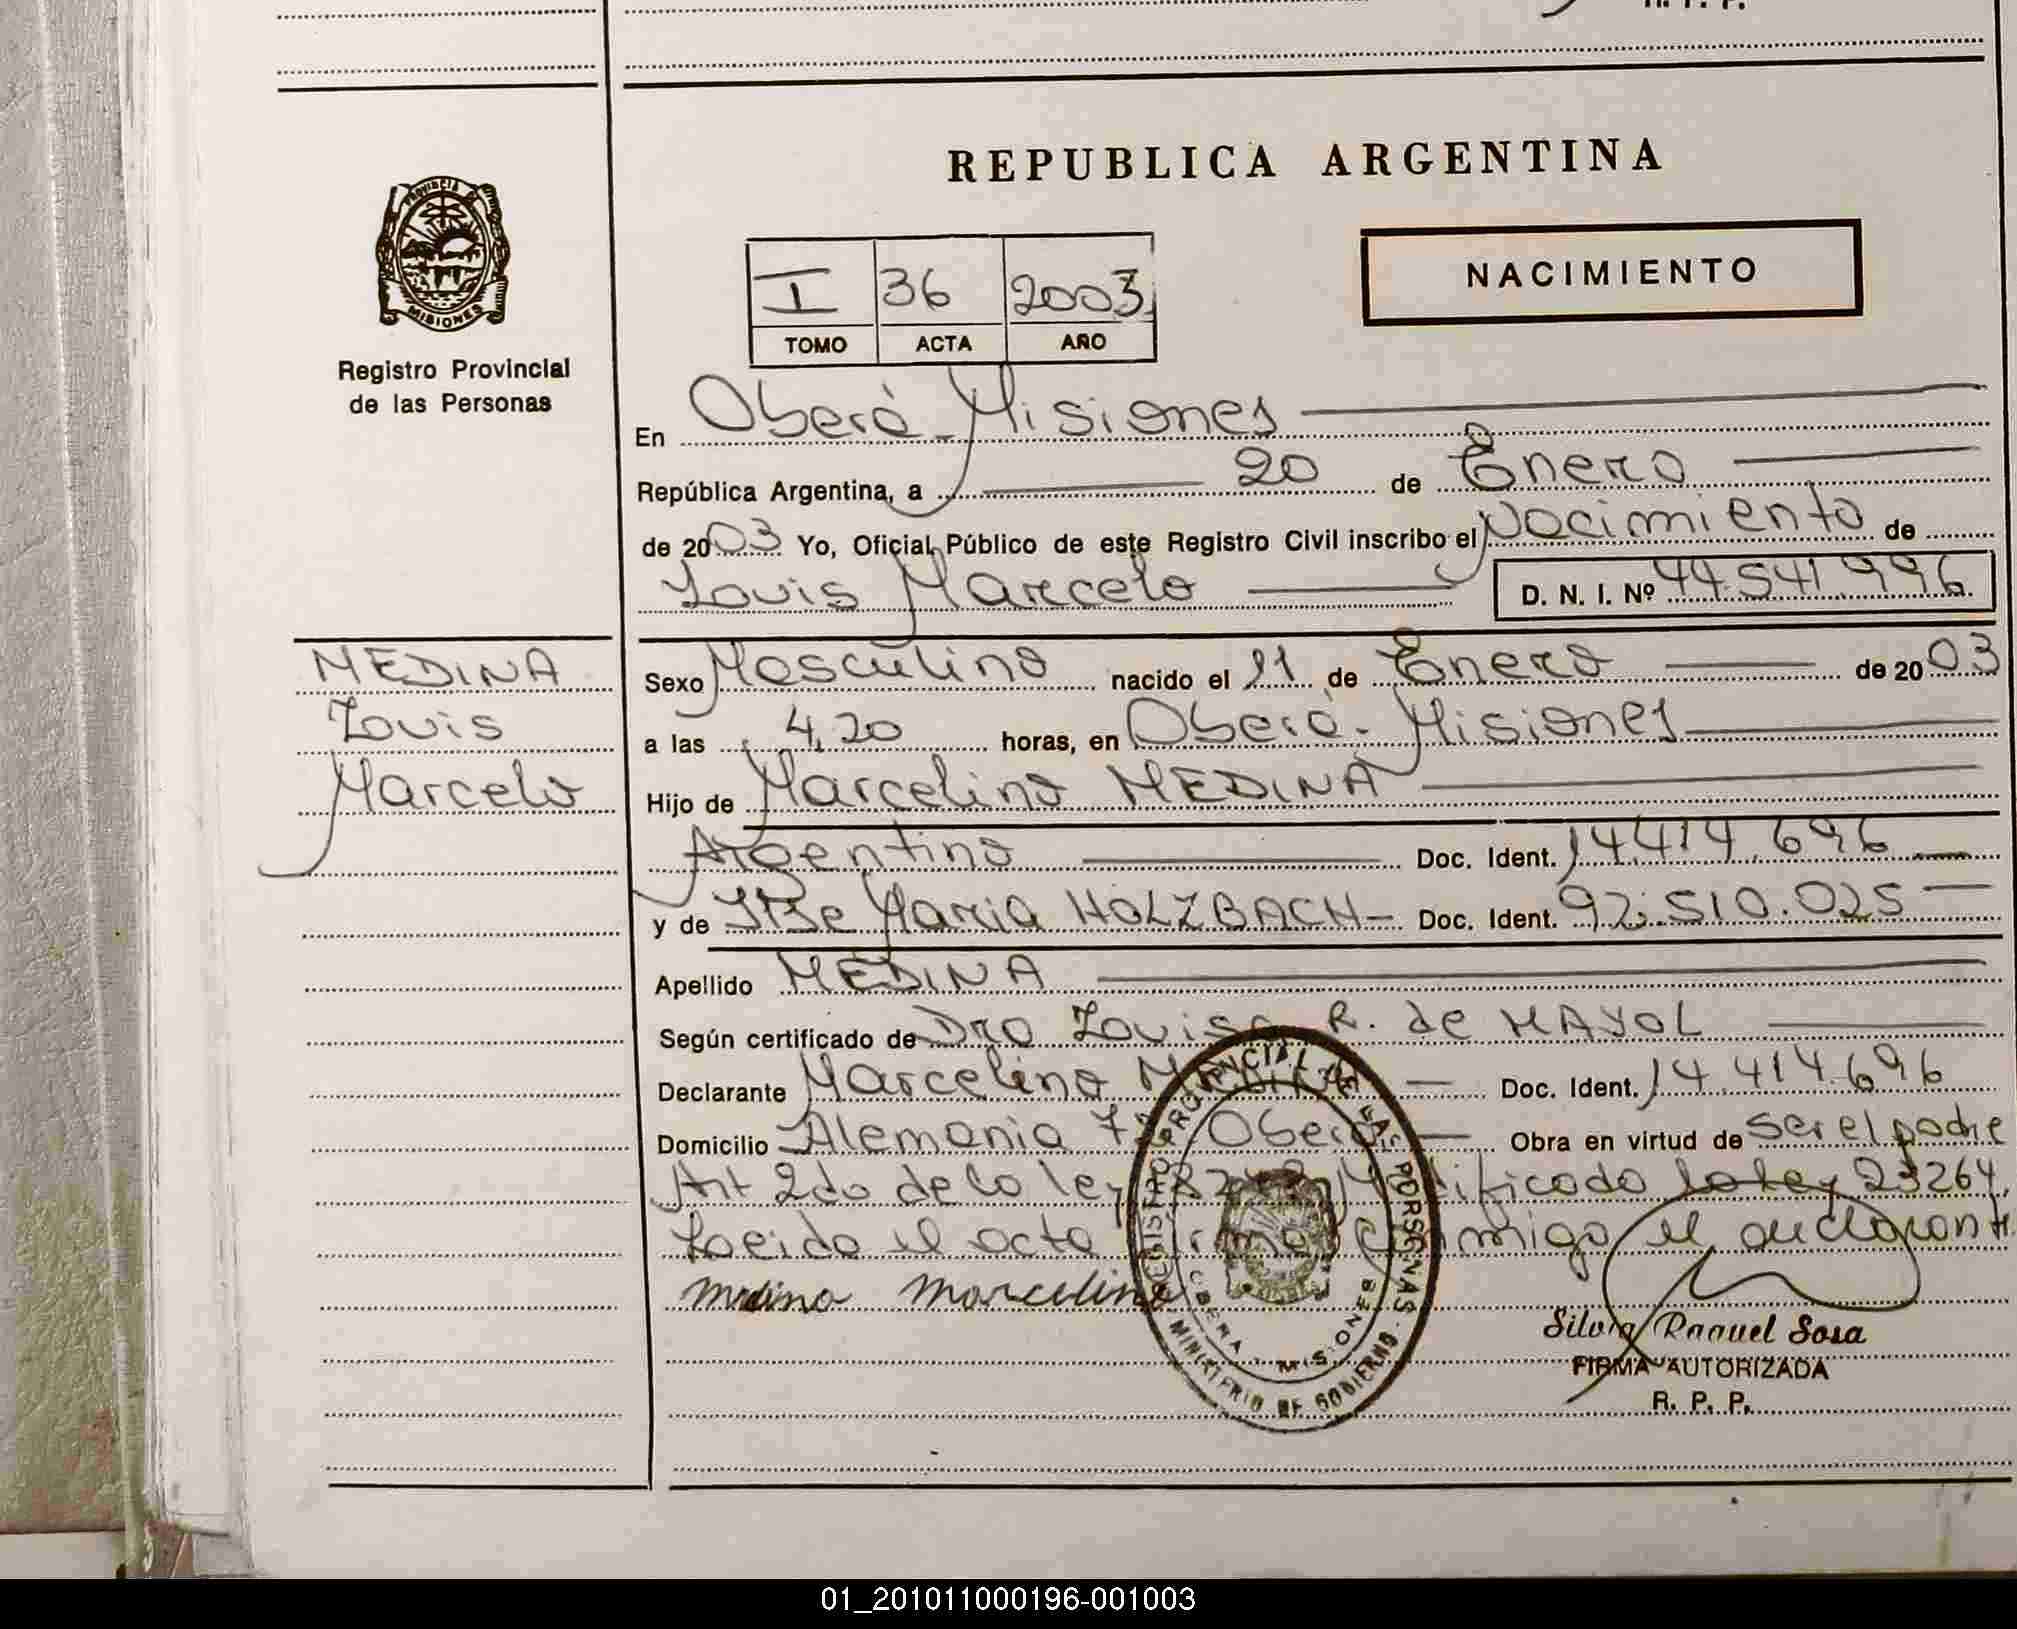 R. P. P.
PROVINCIA
MISIONES
Registro Provincial
de las Personas
REPUBLICA ARGENTINA
I 36 2003
TOMO ACTA AÑO
NACIMIENTO
En Oberá - Misiones
República Argentina, a 20 de Enero
de 2003 Yo, Oficial Público de este Registro Civil inscribo el Nacimiento de
Louis Marcelo D. N. I. Nº 44.541.996.
MEDINA
Louis
Marcelo
Sexo Masculino nacido el 11 de Enero de 2003
a las 4,20 horas, en Oberá - Misiones
Hijo de Marcelino MEDINA
Argentino Doc. Ident. 14.414.696
y de Maria HOLZBACH Doc. Ident. 92.510.025
Apellido MEDINA
Según certificado de Dra Louisa R. de MAYOL
Declarante Marcelino Doc. Ident. 14.414.696
Domicilio Alemania Oberá Obra en virtud de ser el padre
Art 2do de la ley Modificado la ley 23264.
Leida el acta firma conmigo el declarante
medina marcelino
REGISTRO PROVINCIAL DE LAS PERSONAS
MINISTERIO DE GOBIERNO
OBERA - MISIONES
Silvia Raquel Sosa
FIRMA AUTORIZADA
R. P. P.
01_201011000196-001003